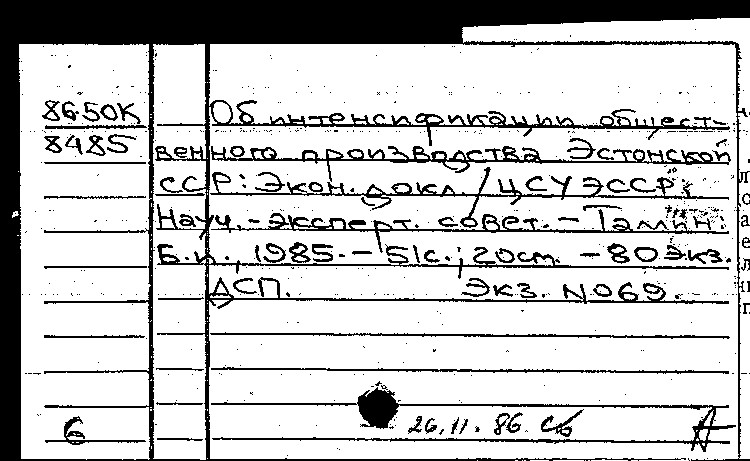 86-50К Об интенсификации общест-
8485 венного производства Эстонской
ССР: Экон. докл. / ЦСУ ЭССР;
Науч.-эксперт. совет. - Таллин:
Б.и., 1985. - 51с.; 20см. - 80 экз.
ДСП. Экз. №069.
6 26.11.86 сб А